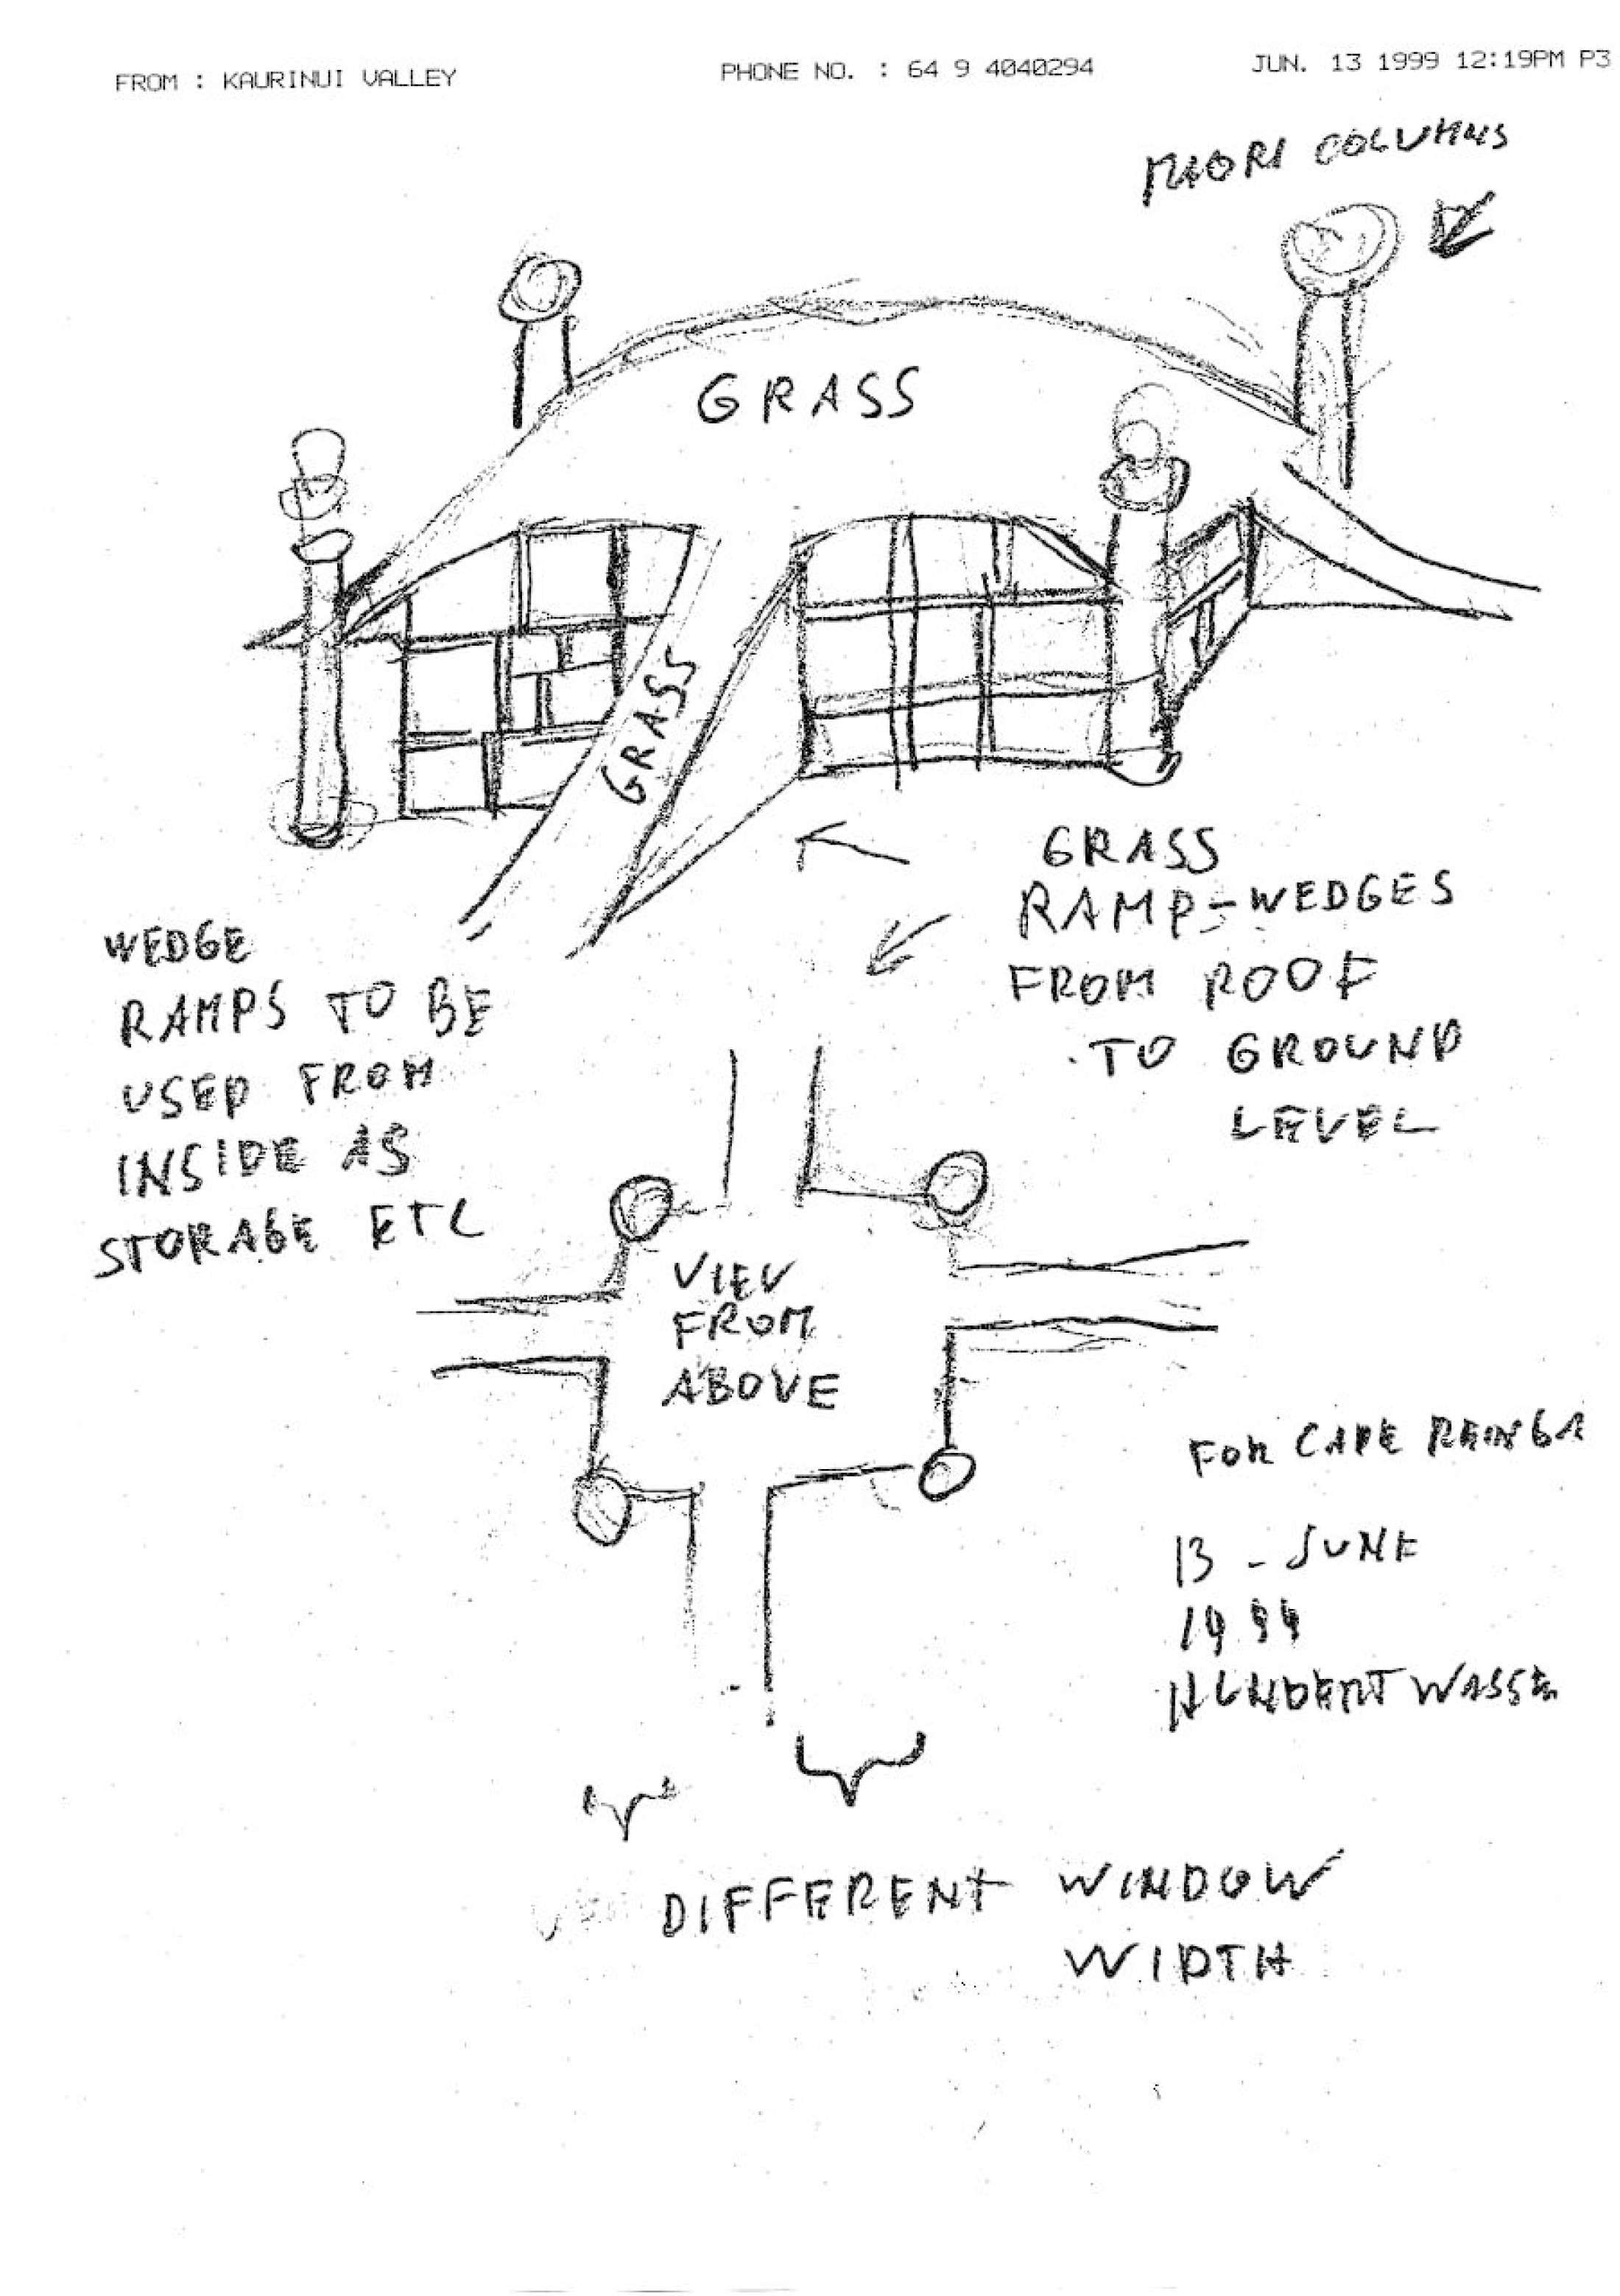 FROM : KAURINUI VALLEY PHONE NO. : 64 9 4040294 JUN. 13 1999 12:19PM P3
MAORI COLUMNS
GRASS
GRASS
GRASS
RAMP-WEDGES
FROM ROOF
TO GROUND
LEVEL
WEDGE
RAMPS TO BE
USED FROM
INSIDE AS
STORAGE ETC
VIEV
FROM
ABOVE
FOR CAPE REINGA
13 - JUNE
1999
HUNDERTWASSER
DIFFERENT WINDOW
WIDTH